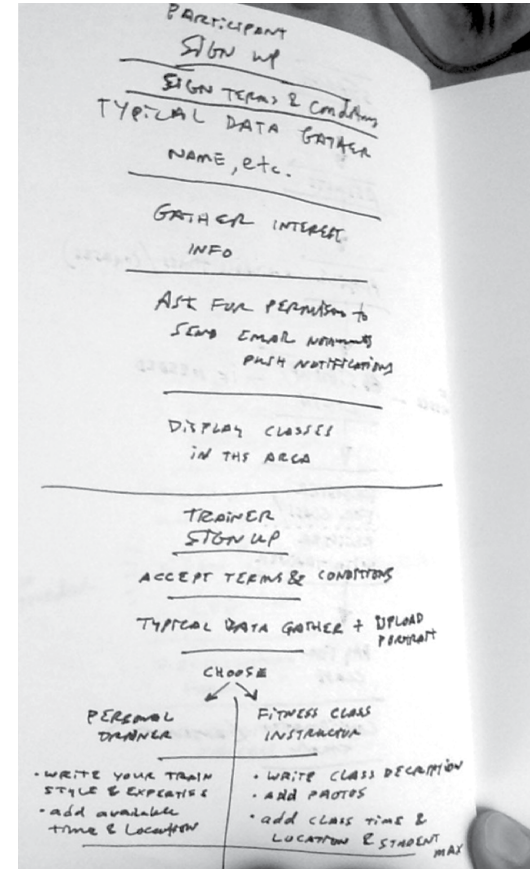 PARTICIPANT
SIGN UP
SIGN TERMS & Conditions
TYPICAL DATA GATHER
NAME, etc.
GATHER INTEREST
INFO
ASK FOR PERMISSION to
SEND EMAIL
PUSH NOTIFICATIONS
DISPLAY CLASSES
IN THE AREA
TRAINER
SIGN UP
ACCEPT TERMS & CONDITIONS
TYPICAL DATA GATHER + UPLOAD
PORTRAIT
CHOOSE
PERSONAL
TRAINER
• WRITE YOUR TRAIN
STYLE & EXPERTISE
• add available
time & Location
FITNESS CLASS
INSTRUCTOR
• WRITE CLASS DECRIPTION
• ADD PHOTOS
• add CLASS TIME &
LOCATION & STUDENT
MAX